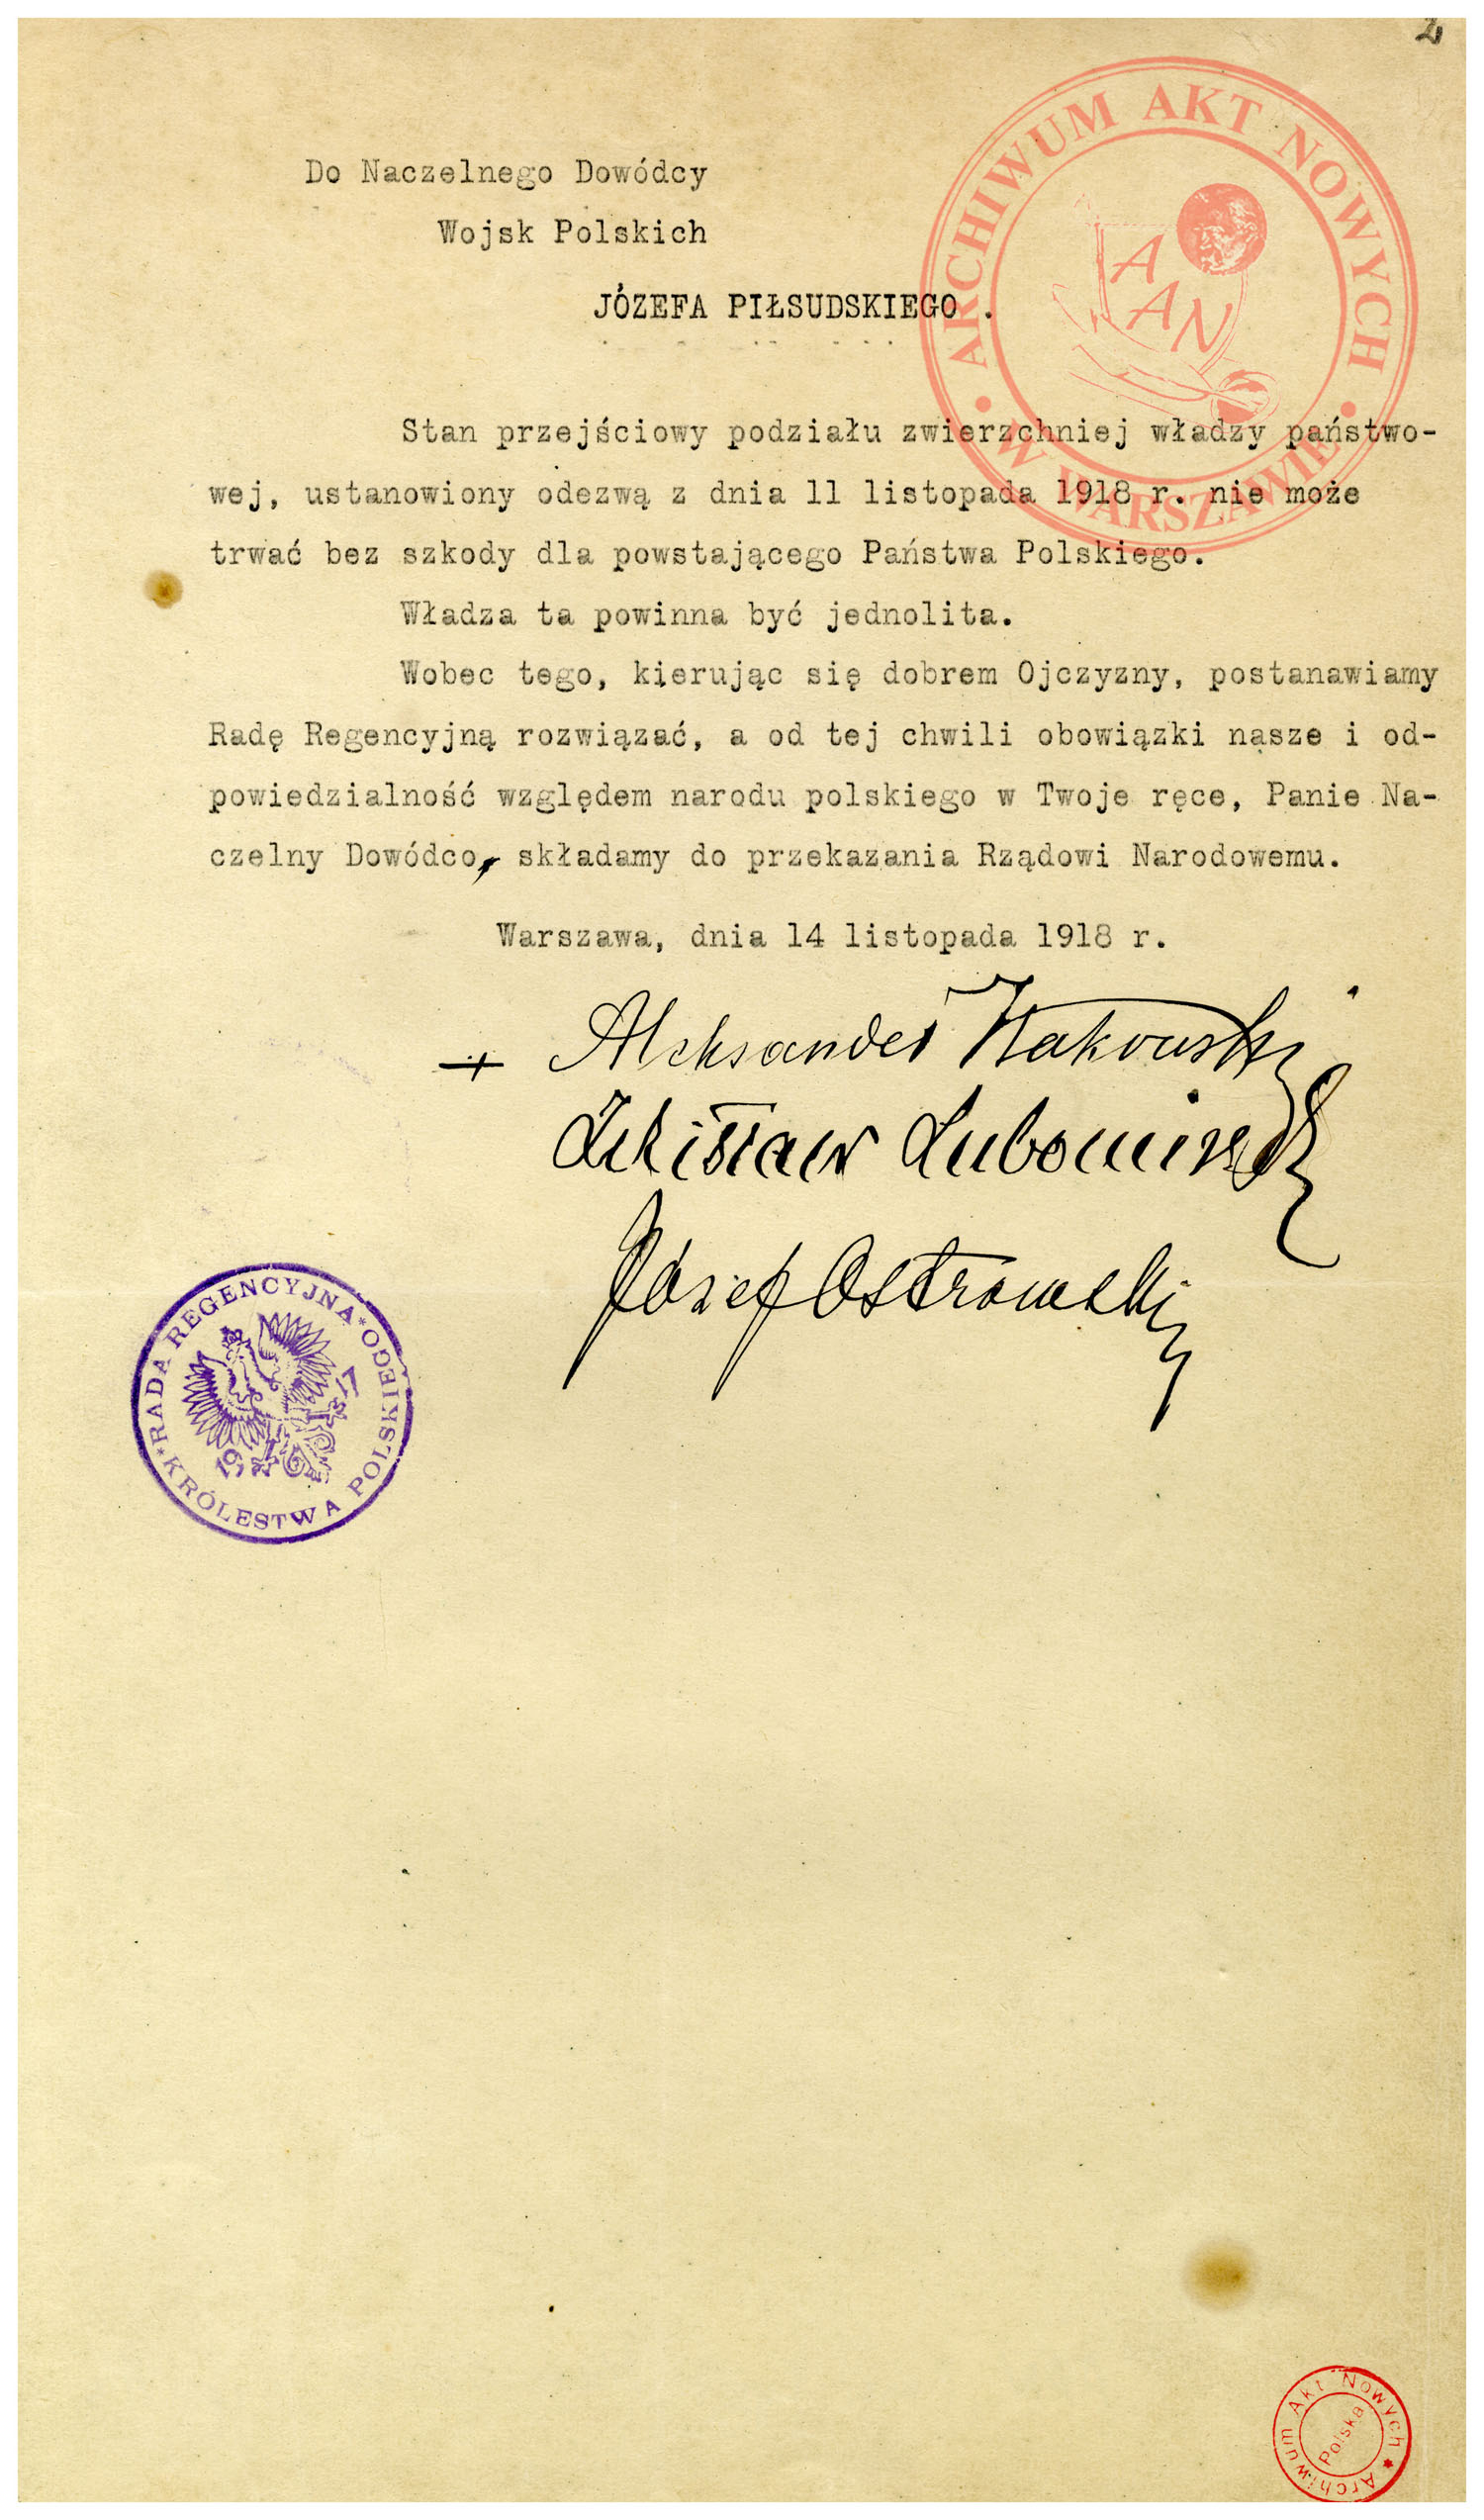 2
ARCHIWUM AKT NOWYCH • W WARSZAWIE •
A
AN
Do Naczelnego Dowódcy
Wojsk Polskich
JÓZEFA PIŁSUDSKIEGO .
Stan przejściowy podziału zwierzchniej władzy państwo-
wej, ustanowiony odezwą z dnia 11 listopada 1918 r. nie może
trwać bez szkody dla powstającego Państwa Polskiego.
Władza ta powinna być jednolita.
Wobec tego, kierując się dobrem Ojczyzny, postanawiamy
Radę Regencyjną rozwiązać, a od tej chwili obowiązki nasze i od-
powiedzialność względem narodu polskiego w Twoje ręce, Panie Na-
czelny Dowódco, składamy do przekazania Rządowi Narodowemu.
Warszawa, dnia 14 listopada 1918 r.
+ Aleksander Kakowski
Zdzisław Lubomirski
Józef Ostrowski
* RADA REGENCYJNA * KRÓLESTWA POLSKIEGO
1917
Archiwum Akt Nowych *
Polska